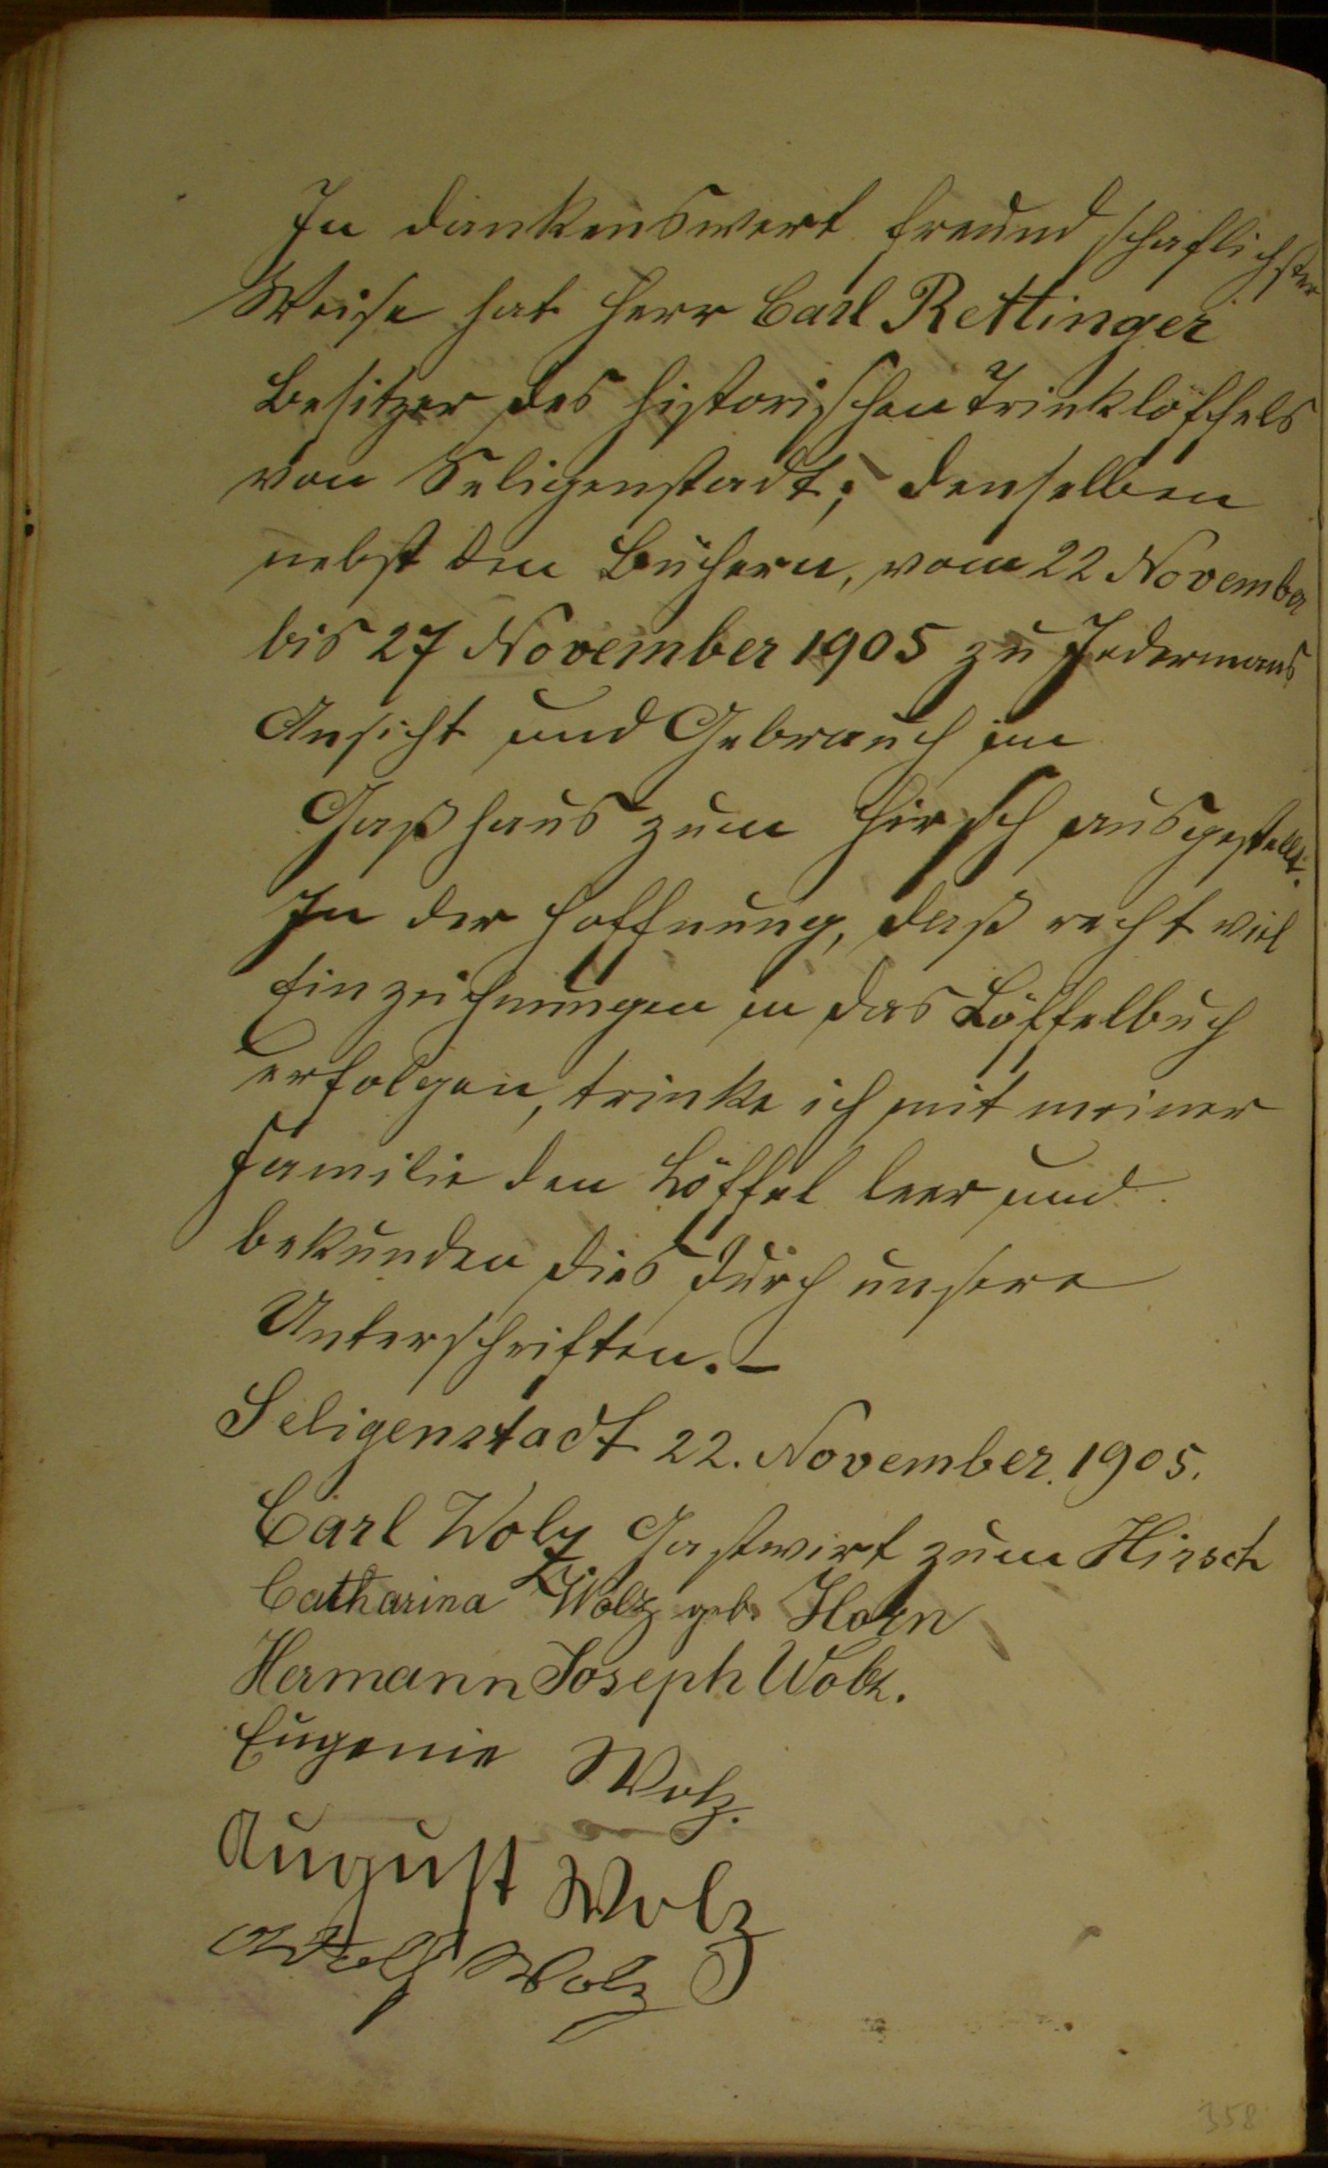 In dankenswert freundschaflichster
Weise hat Herr Carl Rettinger
Besitzer des historischen Trinklöffels
von Seligenstadt; denselben
nebst den Büchern, vom 22 November
bis 27 November 1905 zu Jedermans
Ansicht und Gebrauch im
Gaßhaus zum Hirsch ausgestellt.
In der Hoffnung, daß recht viel
Einzeichnungen in das Löffelbuch
erfolgen, trinke ich mit meiner
Familie den Löffel leer und
bekunden dies durch unsere
Unterschriften. –
Seligenstadt 22. November. 1905.
Carl Wolz Gastwirt zum Hirsch
Catharina Wolz geb. Horn
Hermann Joseph Wolz.
Eugenie Wolz.
August Wolz
Adolf Wolz
358